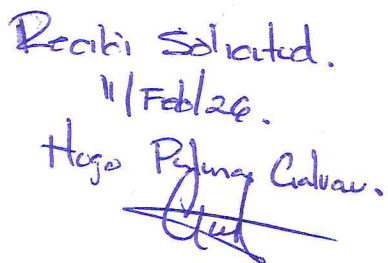 Recibi Solicitud.
11/Feb/26.
Hugo Galvan.